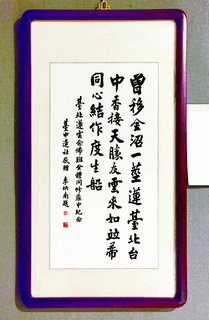 曾移金沼一莖蓮臺北台
中香接天勝友雲來如竝蒂
同心結作度生船
臺北蓮雲念佛班全體同修蒞中紀念
臺中蓮社敬贈 李炳南題